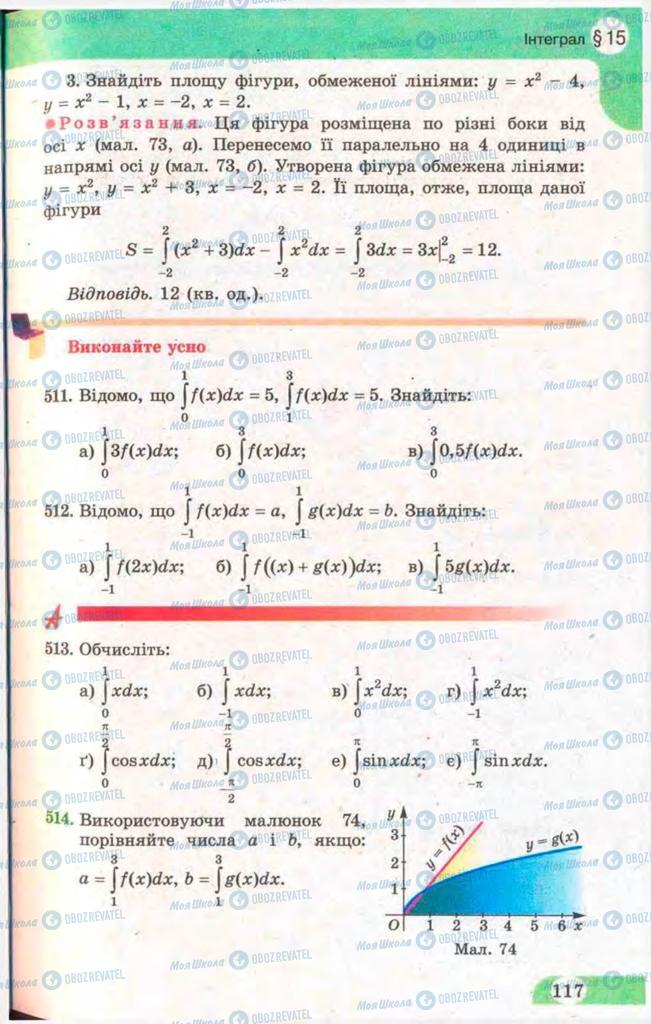 Інтеграл § 15
3. Знайдіть площу фігури, обмеженої лініями: y = x² − 4,
y = x² − 1, x = −2, x = 2.
● Розв'язання. Ця фігура розміщена по різні боки від
осі x (мал. 73, а). Перенесемо її паралельно на 4 одиниці в
напрямі осі y (мал. 73, б). Утворена фігура обмежена лініями:
y = x², y = x² + 3, x = −2, x = 2. Її площа, отже, площа даної
фігури
S = ∫₋₂² (x² + 3)dx − ∫₋₂² x²dx = ∫₋₂² 3dx = 3x|₋₂² = 12.
Відповідь. 12 (кв. од.).
Виконайте усно
511. Відомо, що ∫₀¹ f(x)dx = 5, ∫₁³ f(x)dx = 5. Знайдіть:
а) ∫₀¹ 3f(x)dx; б) ∫₀³ f(x)dx; в) ∫₀³ 0,5f(x)dx.
512. Відомо, що ∫₋₁¹ f(x)dx = a, ∫₋₁¹ g(x)dx = b. Знайдіть:
а) ∫₋₁¹ f(2x)dx; б) ∫₋₁¹ f((x) + g(x))dx; в) ∫₋₁¹ 5g(x)dx.
А
513. Обчисліть:
а) ∫₀¹ xdx; б) ∫₋₁¹ xdx; в) ∫₀¹ x²dx; г) ∫₋₁¹ x²dx;
ґ) ∫₀^(π/2) cosxdx; д) ∫₋(π/2)^(π/2) cosxdx; е) ∫₀^π sinxdx; є) ∫₋π^π sinxdx.
514. Використовуючи малюнок 74,
порівняйте числа a і b, якщо:
a = ∫₁³ f(x)dx, b = ∫₁³ g(x)dx.
y
3
2
1
O 1 2 3 4 5 6 x
y = f(x)
y = g(x)
Мал. 74
117
МояШкола OBOZREVATEL